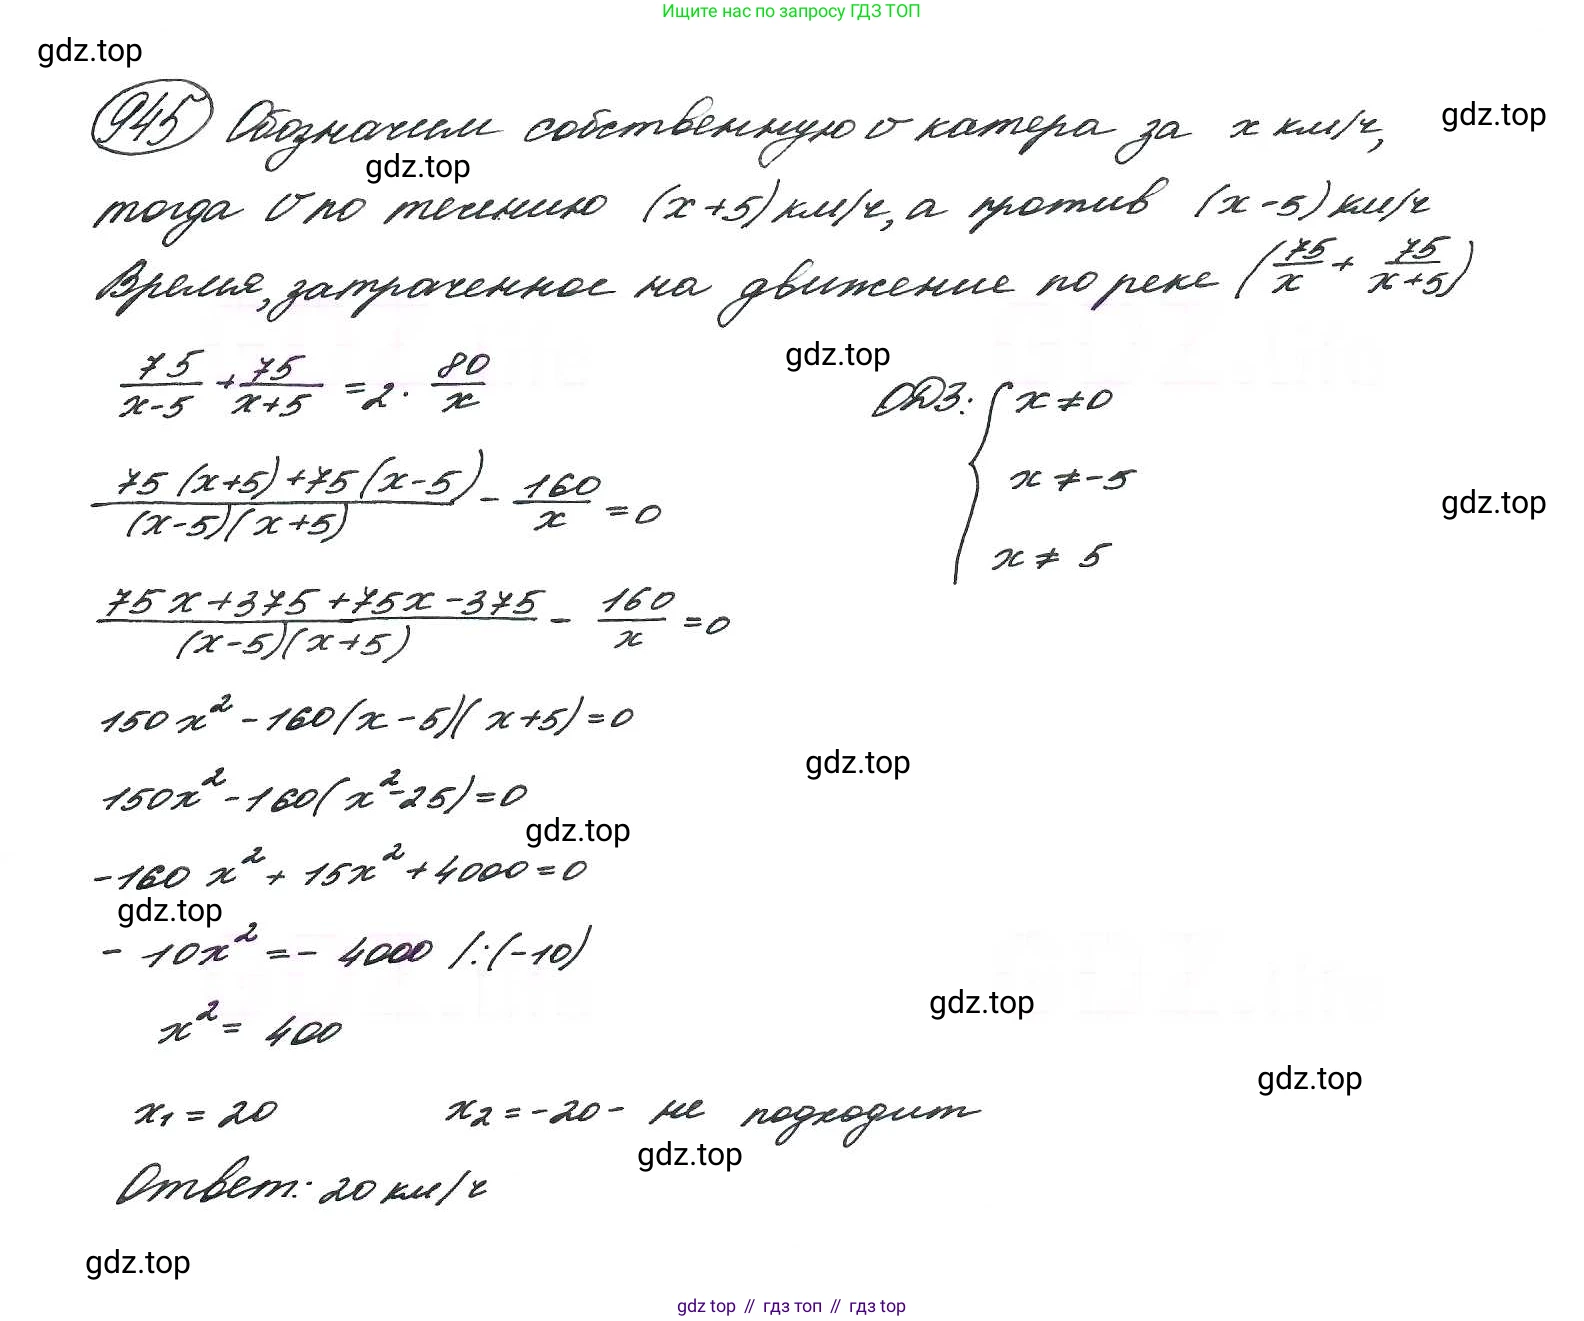 Ищите нас по запросу ГДЗ ТОП
gdz.top
945 Обозначим собственную v катера за x км/ч,
gdz.top
gdz.top
тогда v по течению (x+5) км/ч, а против (x-5) км/ч
Время, затраченное на движение по реке (75/x + 75/(x+5))
gdz.top
75/(x-5) + 75/(x+5) = 2 · 80/x
ОДЗ: { x ≠ 0
x ≠ -5
x ≠ 5
gdz.top
(75(x+5)+75(x-5))/((x-5)(x+5)) - 160/x = 0
(75x+375+75x-375)/((x-5)(x+5)) - 160/x = 0
150x² - 160(x-5)(x+5) = 0
gdz.top
150x² - 160(x²-25) = 0
gdz.top
-160x² + 15x² + 4000 = 0
gdz.top
- 10x² = - 4000 /:(-10)
gdz.top
x² = 400
gdz.top
x₁ = 20 x₂ = -20 - не подходит
gdz.top
Ответ: 20 км/ч
gdz.top
gdz top // гдз топ // gdz top